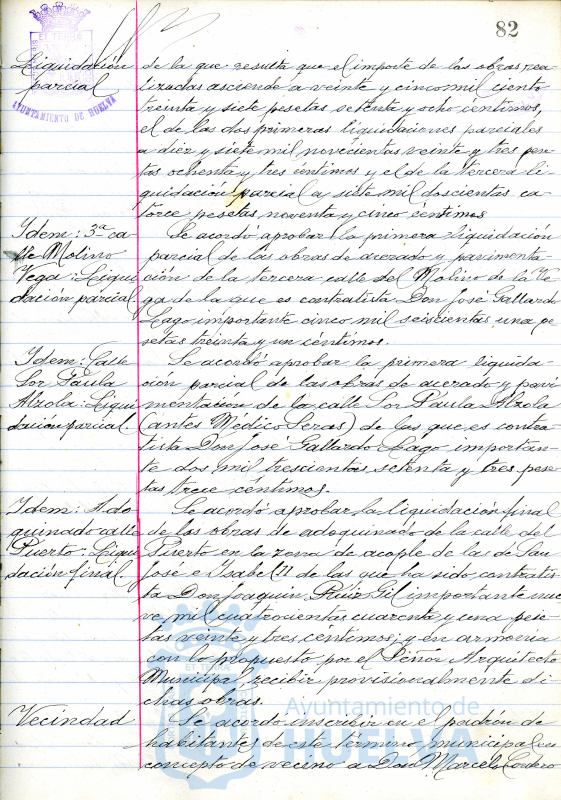 82
AYUNTAMIENTO DE HUELVA
Liquidación
parcial
de la que resulta que el importe de las obras rea-
lizadas asciende a veinte y cinco mil ciento
treinta y siete pesetas setenta y ocho céntimos,
el de las dos primeras liquidaciones parciales
a diez y siete mil novecientas veinte y tres pese-
tas ochenta y tres céntimos y el de la tercera li-
quidación parcial a siete mil doscientas ca-
torce pesetas noventa y cinco céntimos
Idem: 3ª ca-
lle Molino
Vega: Liqui-
dación parcial
Se acordó aprobar la primera liquidación
parcial de las obras de acerado y pavimenta-
ción de la tercera calle del Molino de la Ve-
ga de la que es contratista Don José Gallardo
Lago importante cinco mil seiscientas una pe-
setas treinta y un céntimos.
Idem: Calle
Sor Paula
Alzola: Liqui-
dación parcial
Se acordó aprobar la primera liquida-
ción parcial de las obras de acerado y pavi-
mentación de la calle Sor Paula Alzola
(antes Médico Seras) de las que es contra-
tista Don José Gallardo Lago importan-
te dos mil trescientas setenta y tres pese-
tas trece céntimos.
Idem: Ado-
quinado calle
Puerto: Liqui-
dación final.
Se acordó aprobar la liquidación final
de las obras de adoquinado de la calle del
Puerto en la zona de acople de las de San
José e Isabel II de las que ha sido contratis-
ta Don Joaquín Ruiz Gil importante nue-
ve mil cuatrocientas cuarenta y una pese-
tas veinte y tres céntimos; y en armonía
con lo propuesto por el Señor Arquitecto
Municipal recibir provisionalmente di-
chas obras.
Vecindad
Se acordó inscribir en el padrón de
habitantes de este término municipal en
concepto de vecino a Don Marcelo Cordero
Ayuntamiento de
HUELVA